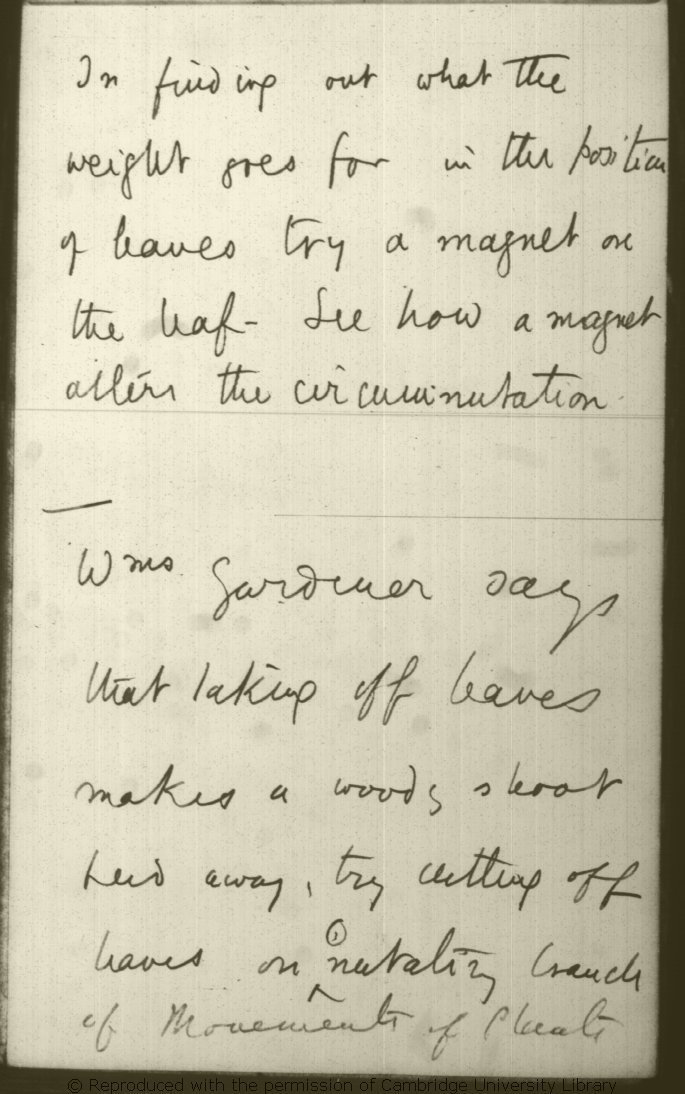 In finding out what the
weight goes for in the position
of leaves try a magnet on
the leaf – See how a magnet
alters the circumnutation
Wms Gardener says
that taking off leaves
makes a woody shoot
bend away, try cutting off
leaves on nutating branch
of Movements of Plants
© Reproduced with the permission of Cambridge University Library